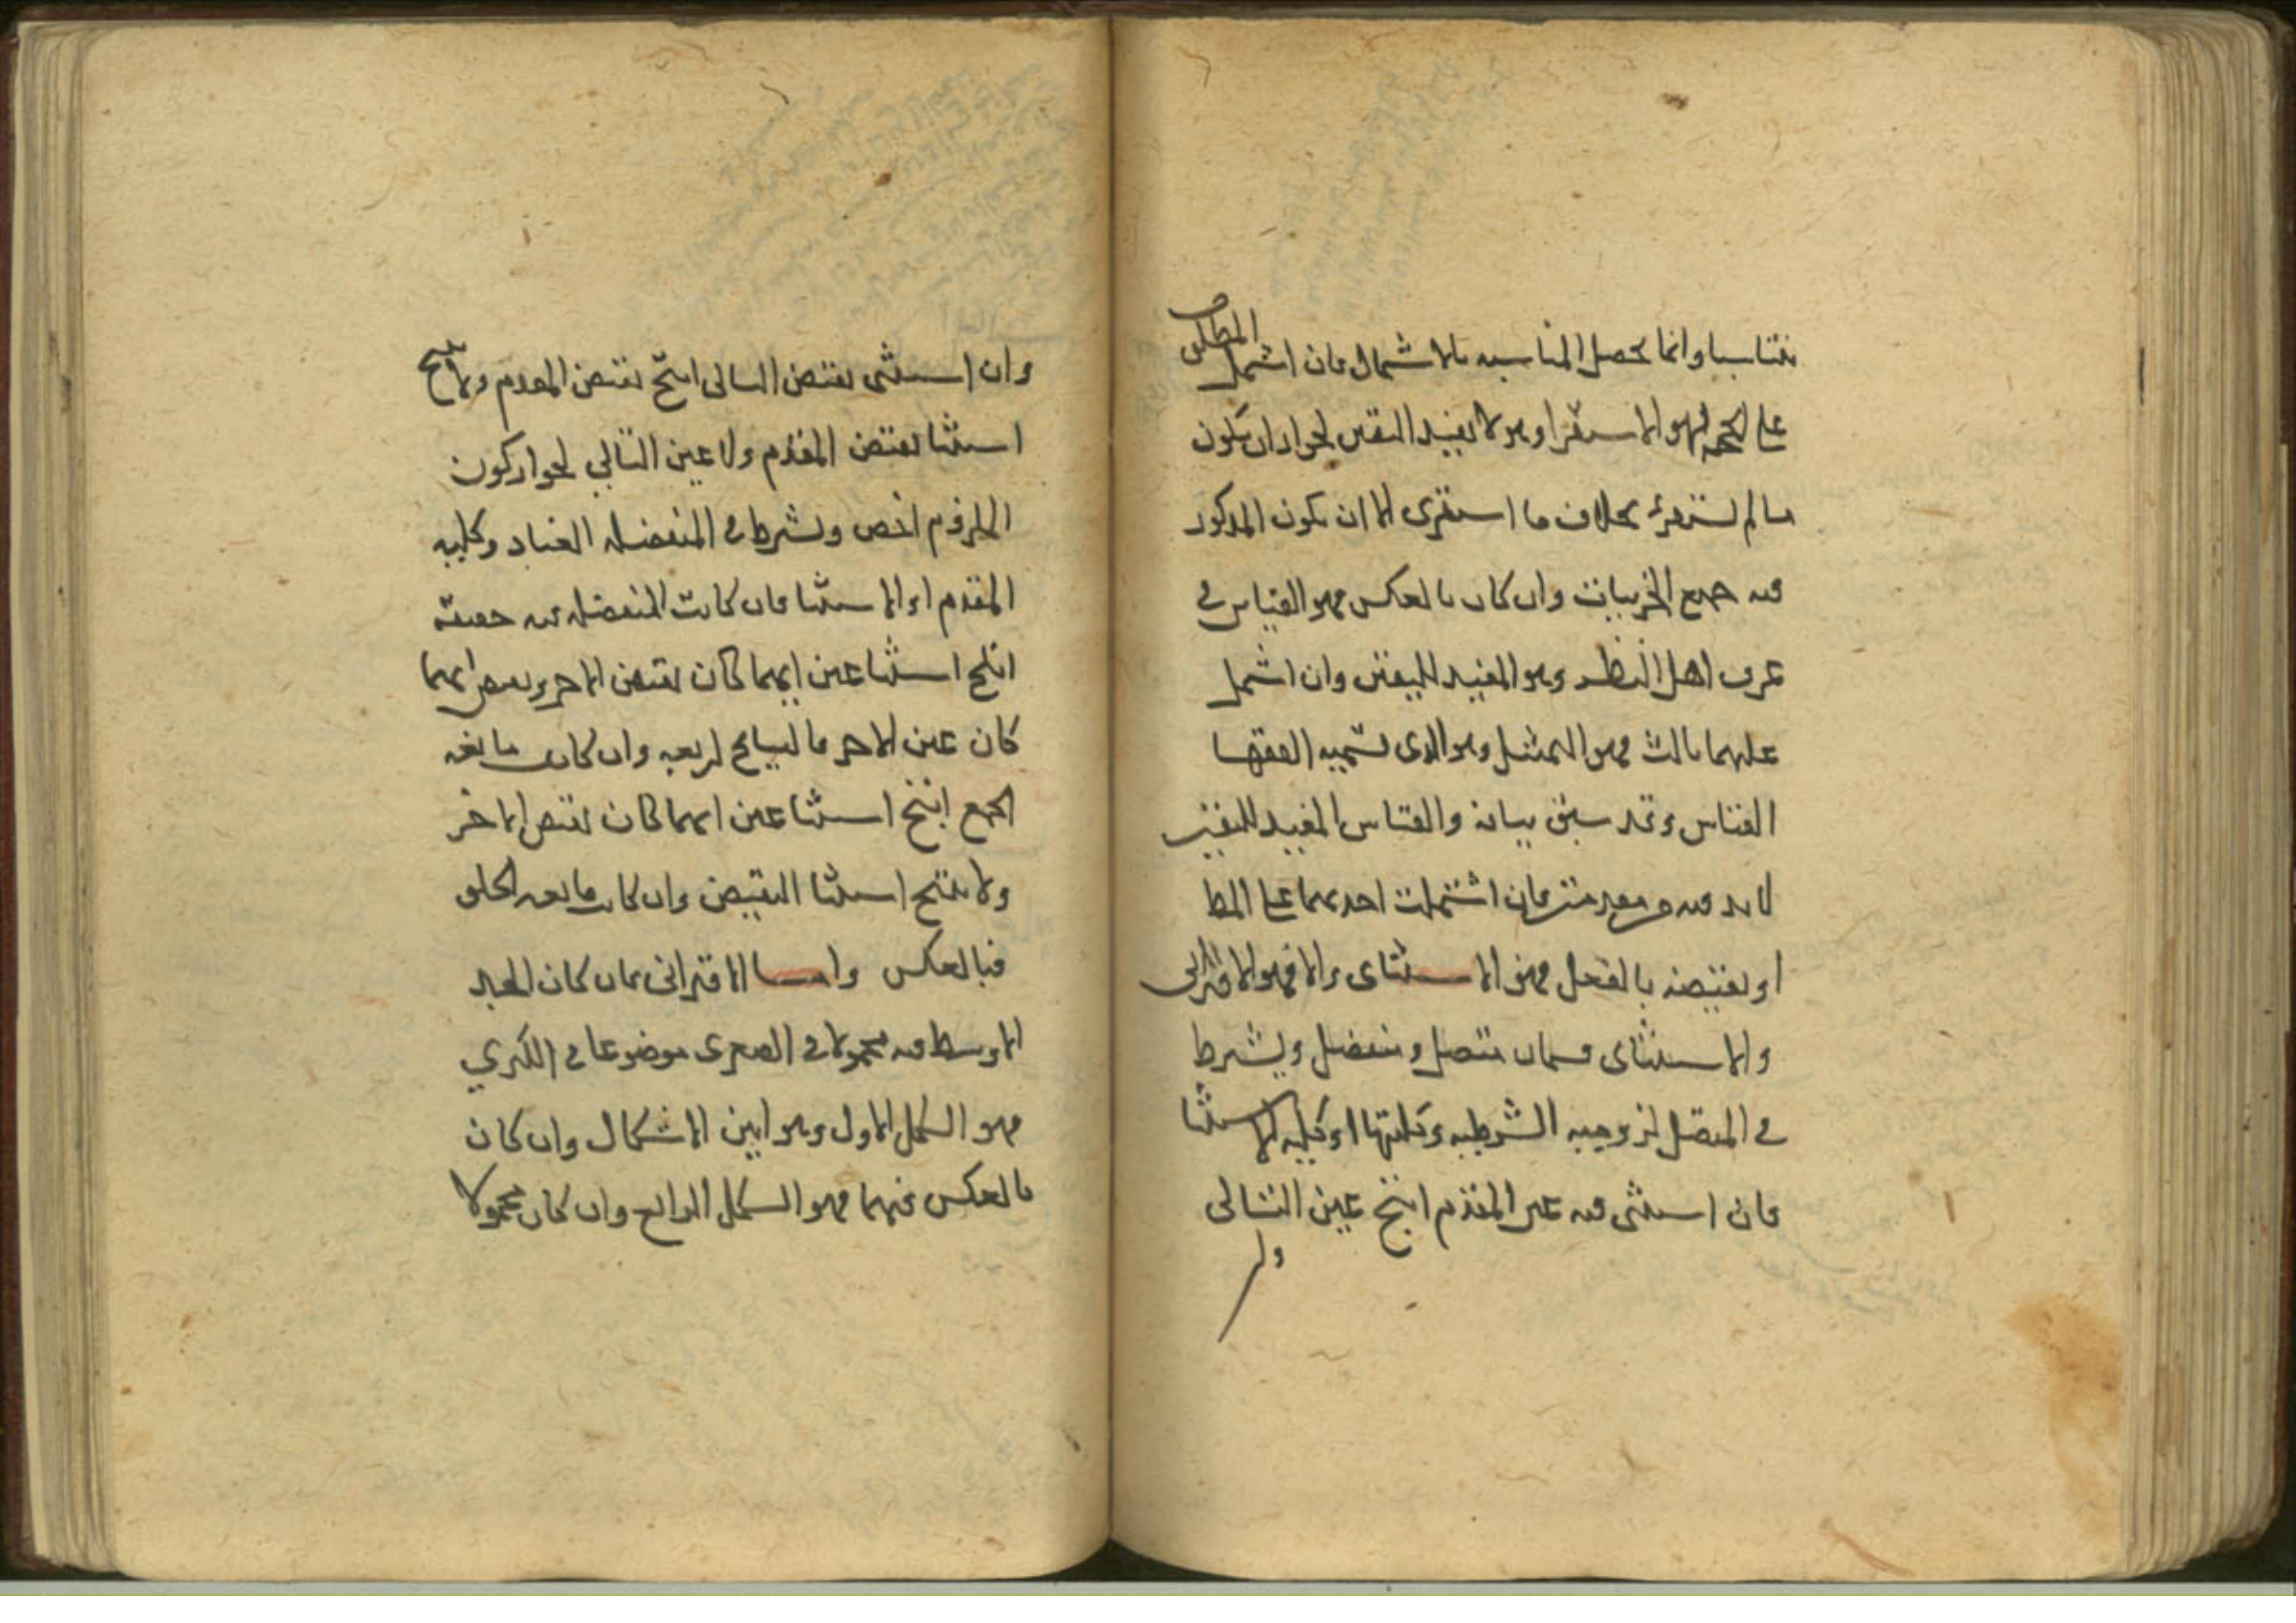 يتناسبا وانما يحصل المناسبه بالاشتمال فان اشتمل المطلوب
على الحجه فهو الاستقرا وهو لا يفيد اليقين لجواز ان يكون
ما لم يستقرئ بخلاف ما استقرى الا ان يكون المذكور
فيه جميع الجزييات وان كان بالعكس فهو القياس في
عرف اهل النظر وهو المفيد لليقين وان اشتمل
عليهما ثالث فهو التمثيل وهو الذي تسميه الفقها
القياس وقد سبق بيانه والقياس المفيد لليقين
لا بد فيه من مقدمتين فان اشتملت احديهما على المط
او نقيضه بالفعل فهو الاستثناى والا فهو الاقترانى
والاستثناى قسمان متصل ومنفصل ويشترط
في المتصل لزوميه الشرطيه وكليتها او كليه الاستثنا
فان استثنى فيه عين المقدم انتج عين التالى
وان
وان استثنى نقيض التالى انتج نقيض المقدم ولا ينتج
استثنا نقيض المقدم ولا عين التالي لجواز كون
الملزوم اخص ويشترط في المنفصله العناد وكليه
المقدم او الاستثنا فان كانت المنفصله فيه حقيقة
انتج استثنا عين ايهما كان نقيض الاخر ونقيض ايهما
كان عين الاخر فالنتايج اربعه وان كانت مانعه
الجمع انتج استثنا عين ايهما كان نقيض الاخر
ولا ينتج استثنا النقيض وان كانت مانعه الخلو
فبالعكس واما الاقترانى فان كان الحد
الاوسط فيه محمولا في الصغرى موضوعا في الكبري
فهو الشكل الاول وهو ابين الاشكال وان كان
بالعكس فيهما فهو الشكل الرابع وان كان محمولا